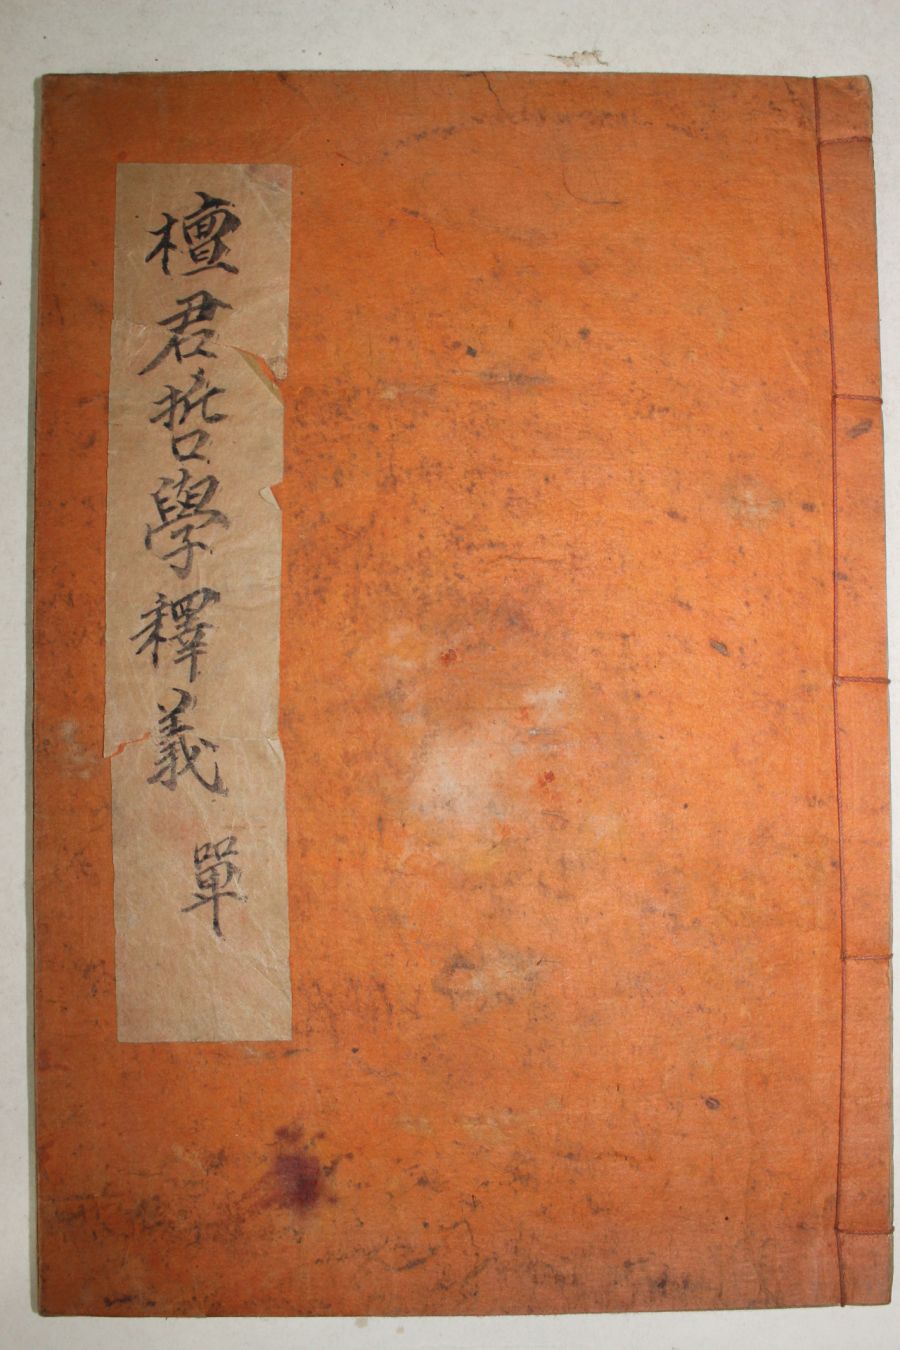 檀君哲學釋義 單